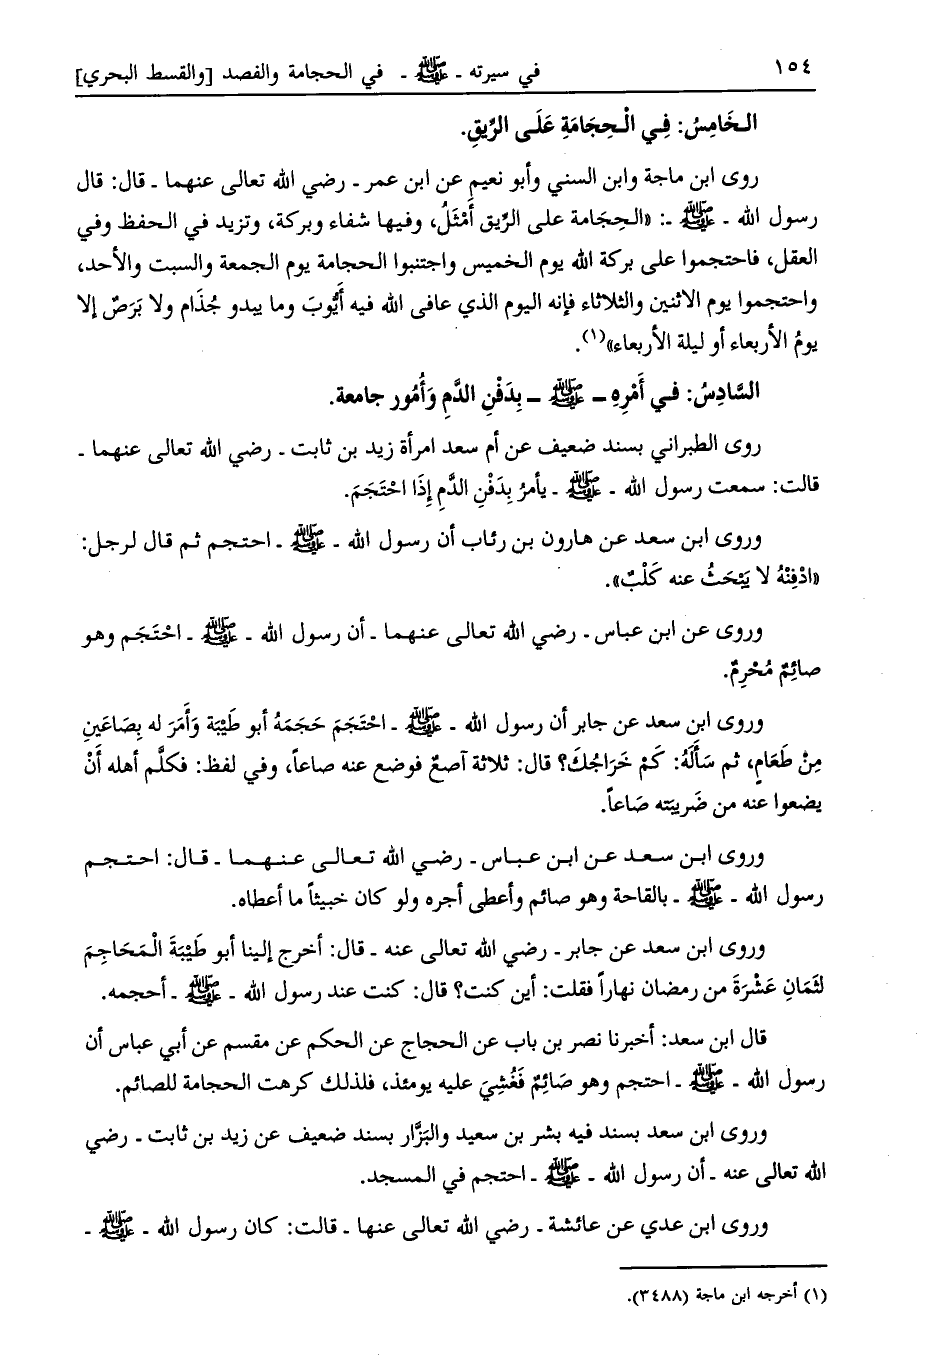 ١٥٤
في سيرته ـ ﷺ ـ في الحجامة والفصد [والقسط البحري]
الخَامِسُ: فِي الْحِجَامَةِ عَلَى الرِّيقِ.
روى ابن ماجة وابن السني وأبو نعيم عن ابن عمر ـ رضي الله تعالى عنهما ـ قال: قال
رسول الله ـ ﷺ ـ: «الحِجَامة على الرِّيق أَمْثَلُ، وفيها شفاء وبركة، وتزيد في الحفظ وفي
العقل، فاحتجموا على بركة الله يوم الخميس واجتنبوا الحجامة يوم الجمعة والسبت والأحد،
واحتجموا يوم الاثنين والثلاثاء فإنه اليوم الذي عافى الله فيه أَيُّوبَ وما يبدو جُذَام ولا بَرَصٌ إلا
يومُ الأربعاء أو ليلة الأربعاء»(١).
السَّادِسُ: فـي أَمْرِهِ ـ ﷺ ـ بِدَفْنِ الدَّمِ وَأُمُور جامعة.
روى الطبراني بسند ضعيف عن أم سعد امرأة زيد بن ثابت ـ رضي الله تعالى عنهما ـ
قالت: سمعت رسول الله ـ ﷺ ـ يأمرُ بِدَفْنِ الدَّمِ إِذَا احْتَجَمَ.
وروى ابن سعد عن هارون بن رئاب أن رسول الله ـ ﷺ ـ احتجم ثم قال لرجل:
«ادْفِنْهُ لا يَبْحَثُ عنه كَلْبٌ».
وروى عن ابن عباس ـ رضي الله تعالى عنهما ـ أن رسول الله ـ ﷺ ـ احْتَجَم وهو
صائِمٌ مُحْرِمٌ.
وروى ابن سعد عن جابر أن رسول الله ـ ﷺ ـ احْتَجَمَ حَجَمَهُ أبو طَيْبَة وَأَمَرَ له بِصَاعَينِ
مِنْ طَعَامٍ، ثم سَأَلَهُ: كَمْ خَرَاجُكَ؟ قال: ثلاثة آصعٌ فوضع عنه صاعاً، وفي لفظ: فكلَّم أهله أَنْ
يضعوا عنه من ضَرِيبَته صَاعاً.
وروى ابن سعد عن ابن عباس ـ رضي الله تعالى عنهما ـ قال: احتجم
رسول الله ـ ﷺ ـ بالقاحة وهو صائم وأعطى أجره ولو كان خبيثاً ما أعطاه.
وروى ابن سعد عن جابر ـ رضي الله تعالى عنه ـ قال: أخرج إلينا أبو طَيْبَةَ الْمَحَاجِمَ
لثَمَانِ عَشْرَةَ من رمضان نهاراً فقلت: أين كنت؟ قال: كنت عند رسول الله ـ ﷺ ـ أحجمه.
قال ابن سعد: أخبرنا نصر بن باب عن الحجاج عن الحكم عن مقسم عن أبي عباس أن
رسول الله ـ ﷺ ـ احتجم وهو صَائِمٌ فَغُشِيَ عليه يومئذ، فلذلك كرهت الحجامة للصائم.
وروى ابن سعد بسند فيه بشر بن سعيد والبَزَّار بسند ضعيف عن زيد بن ثابت ـ رضي
الله تعالى عنه ـ أن رسول الله ـ ﷺ ـ احتجم في المسجد.
وروى ابن عدي عن عائشة ـ رضي الله تعالى عنها ـ قالت: كان رسول الله ـ ﷺ ـ
(١) أخرجه ابن ماجة (٣٤٨٨).